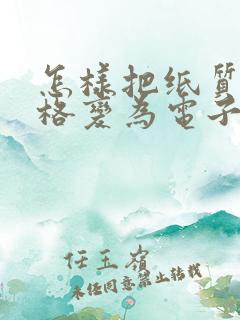 怎樣把纸質
格變為電子
任玉嶺
未任同意禁止转载